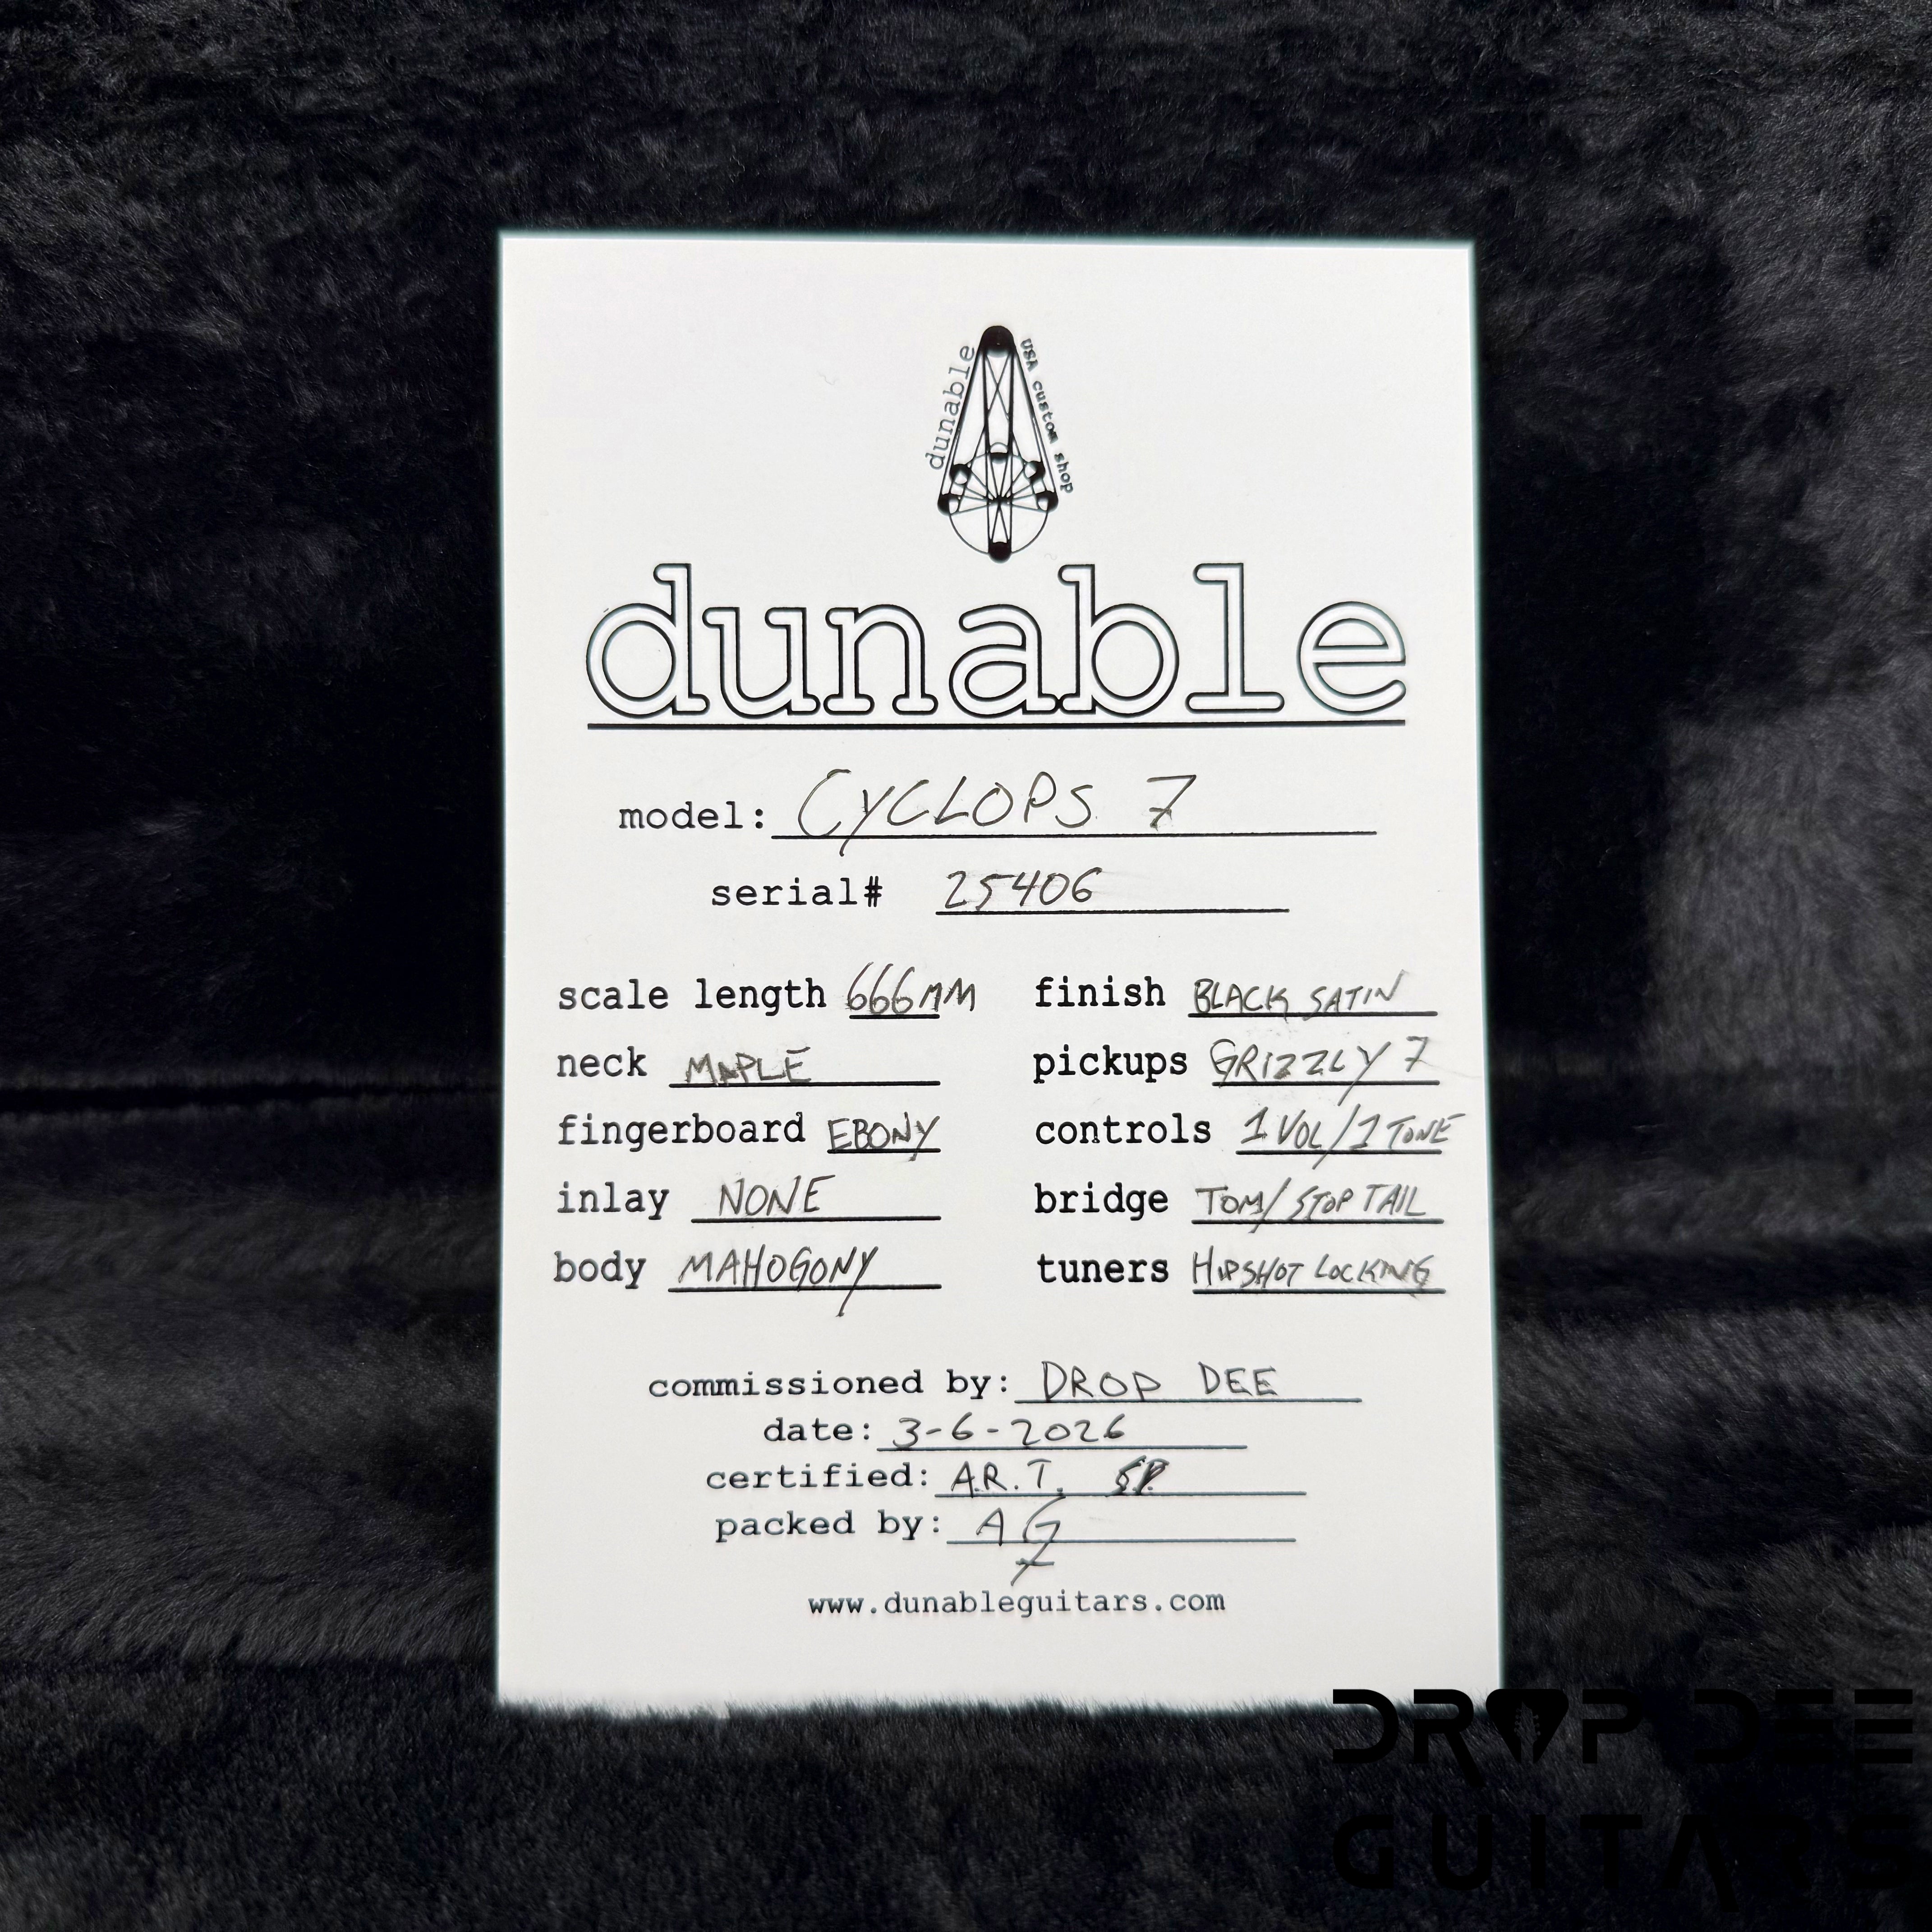 dunable USA custom shop
dunable
model: CYCLOPS 7
serial# 25406
scale length 666MM
neck MAPLE
fingerboard EBONY
inlay NONE
body MAHOGONY
finish BLACK SATIN
pickups GRIZZLY 7
controls 1 VOL/1 TONE
bridge TOM/STOP TAIL
tuners HIPSHOT LOCKING
commissioned by: DROP DEE
date: 3-6-2026
certified: A.R.T.
packed by: AG
www.dunableguitars.com
DROP DEE
GUITARS